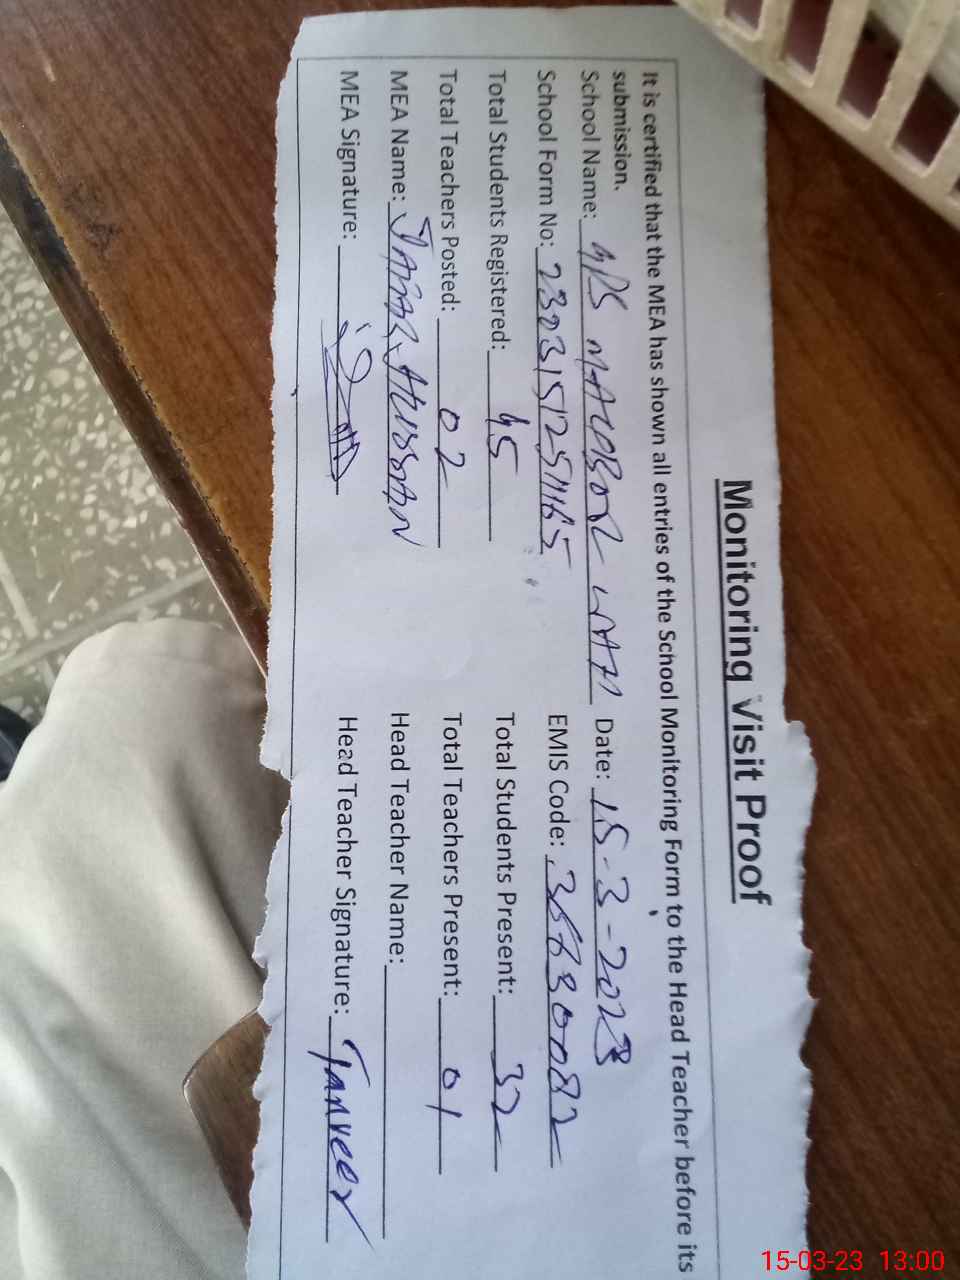 Monitoring Visit Proof
It is certified that the MEA has shown all entries of the School Monitoring Form to the Head Teacher before its
submission.
School Name: Date: 15-3-2023
School Form No: EMIS Code:
Total Students Registered: 45 Total Students Present: 32
Total Teachers Posted: 02 Total Teachers Present: 01
MEA Name: HUSSAN Head Teacher Name:
MEA Signature: Head Teacher Signature: Tanveer
15-03-23 13:00